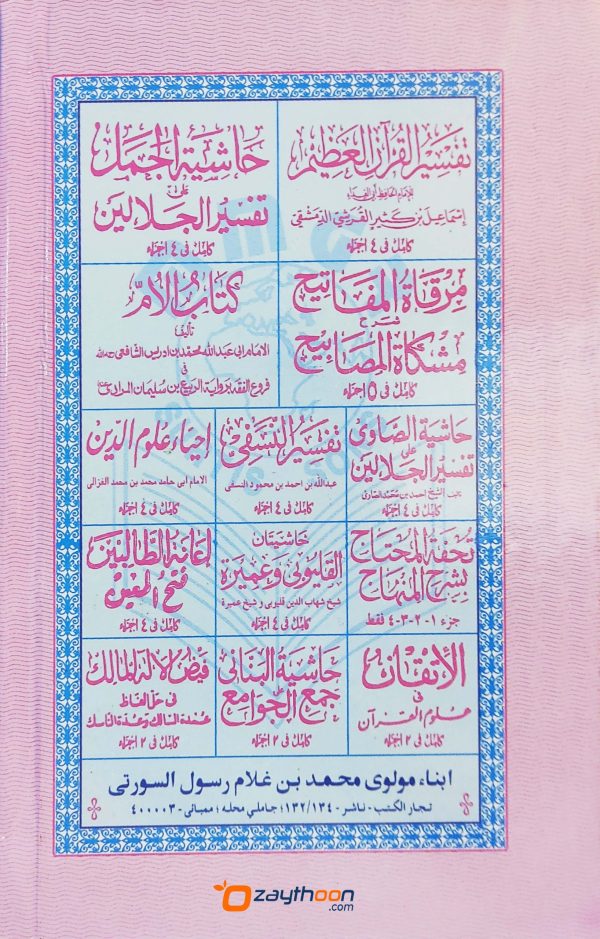 تفسير القرآن العظيم
للإمام الحافظ أبي الفداء
إسماعيل بن كثير القرشي الدمشقي
كامل في ٤ أجزاء
حاشية الجمل
على
تفسير الجلالين
كامل في ٤ أجزاء
مرقاة المفاتيح
شرح
مشكاة المصابيح
كامل في ٥ أجزاء
كتاب الأم
تأليف
الامام ابي عبدالله محمد بن ادريس الشافعي
في
فروع الفقه برواية الربيع بن سليمان المرادي
حاشية الصاوي
على
تفسير الجلالين
الشيخ احمد بن محمد الصاوي
كامل في ٤ أجزاء
تفسير النسفي
عبدالله بن احمد بن محمود النسفي
كامل في ٤ أجزاء
إحياء علوم الدين
الامام أبي حامد محمد بن محمد الغزالي
كامل في ٤ أجزاء
تحفة المحتاج
بشرح المنهاج
جزء ١-٢-٣-٤ فقط
حاشيتان
القليوبي وعميرة
شيخ شهاب الدين قليوبي و شيخ عميرة
كامل في ٤ أجزاء
إعانة الطالبين
فتح المعين
كامل في ٤ أجزاء
الإتقان
في
علوم القرآن
كامل في ٢ أجزاء
حاشية البناني
جمع الجوامع
كامل في ٢ أجزاء
فيض الإله المالك
في حل ألفاظ
عمدة السالك وعدة الناسك
كامل في ٢ أجزاء
ابناء مولوى محمد بن غلام رسول السورتى
تجار الكتب - ناشر - ١٣٢/١٣٤؛ جاملي محله؛ ممبائى - ٤٠٠٠٠٣
zaythoon
.com